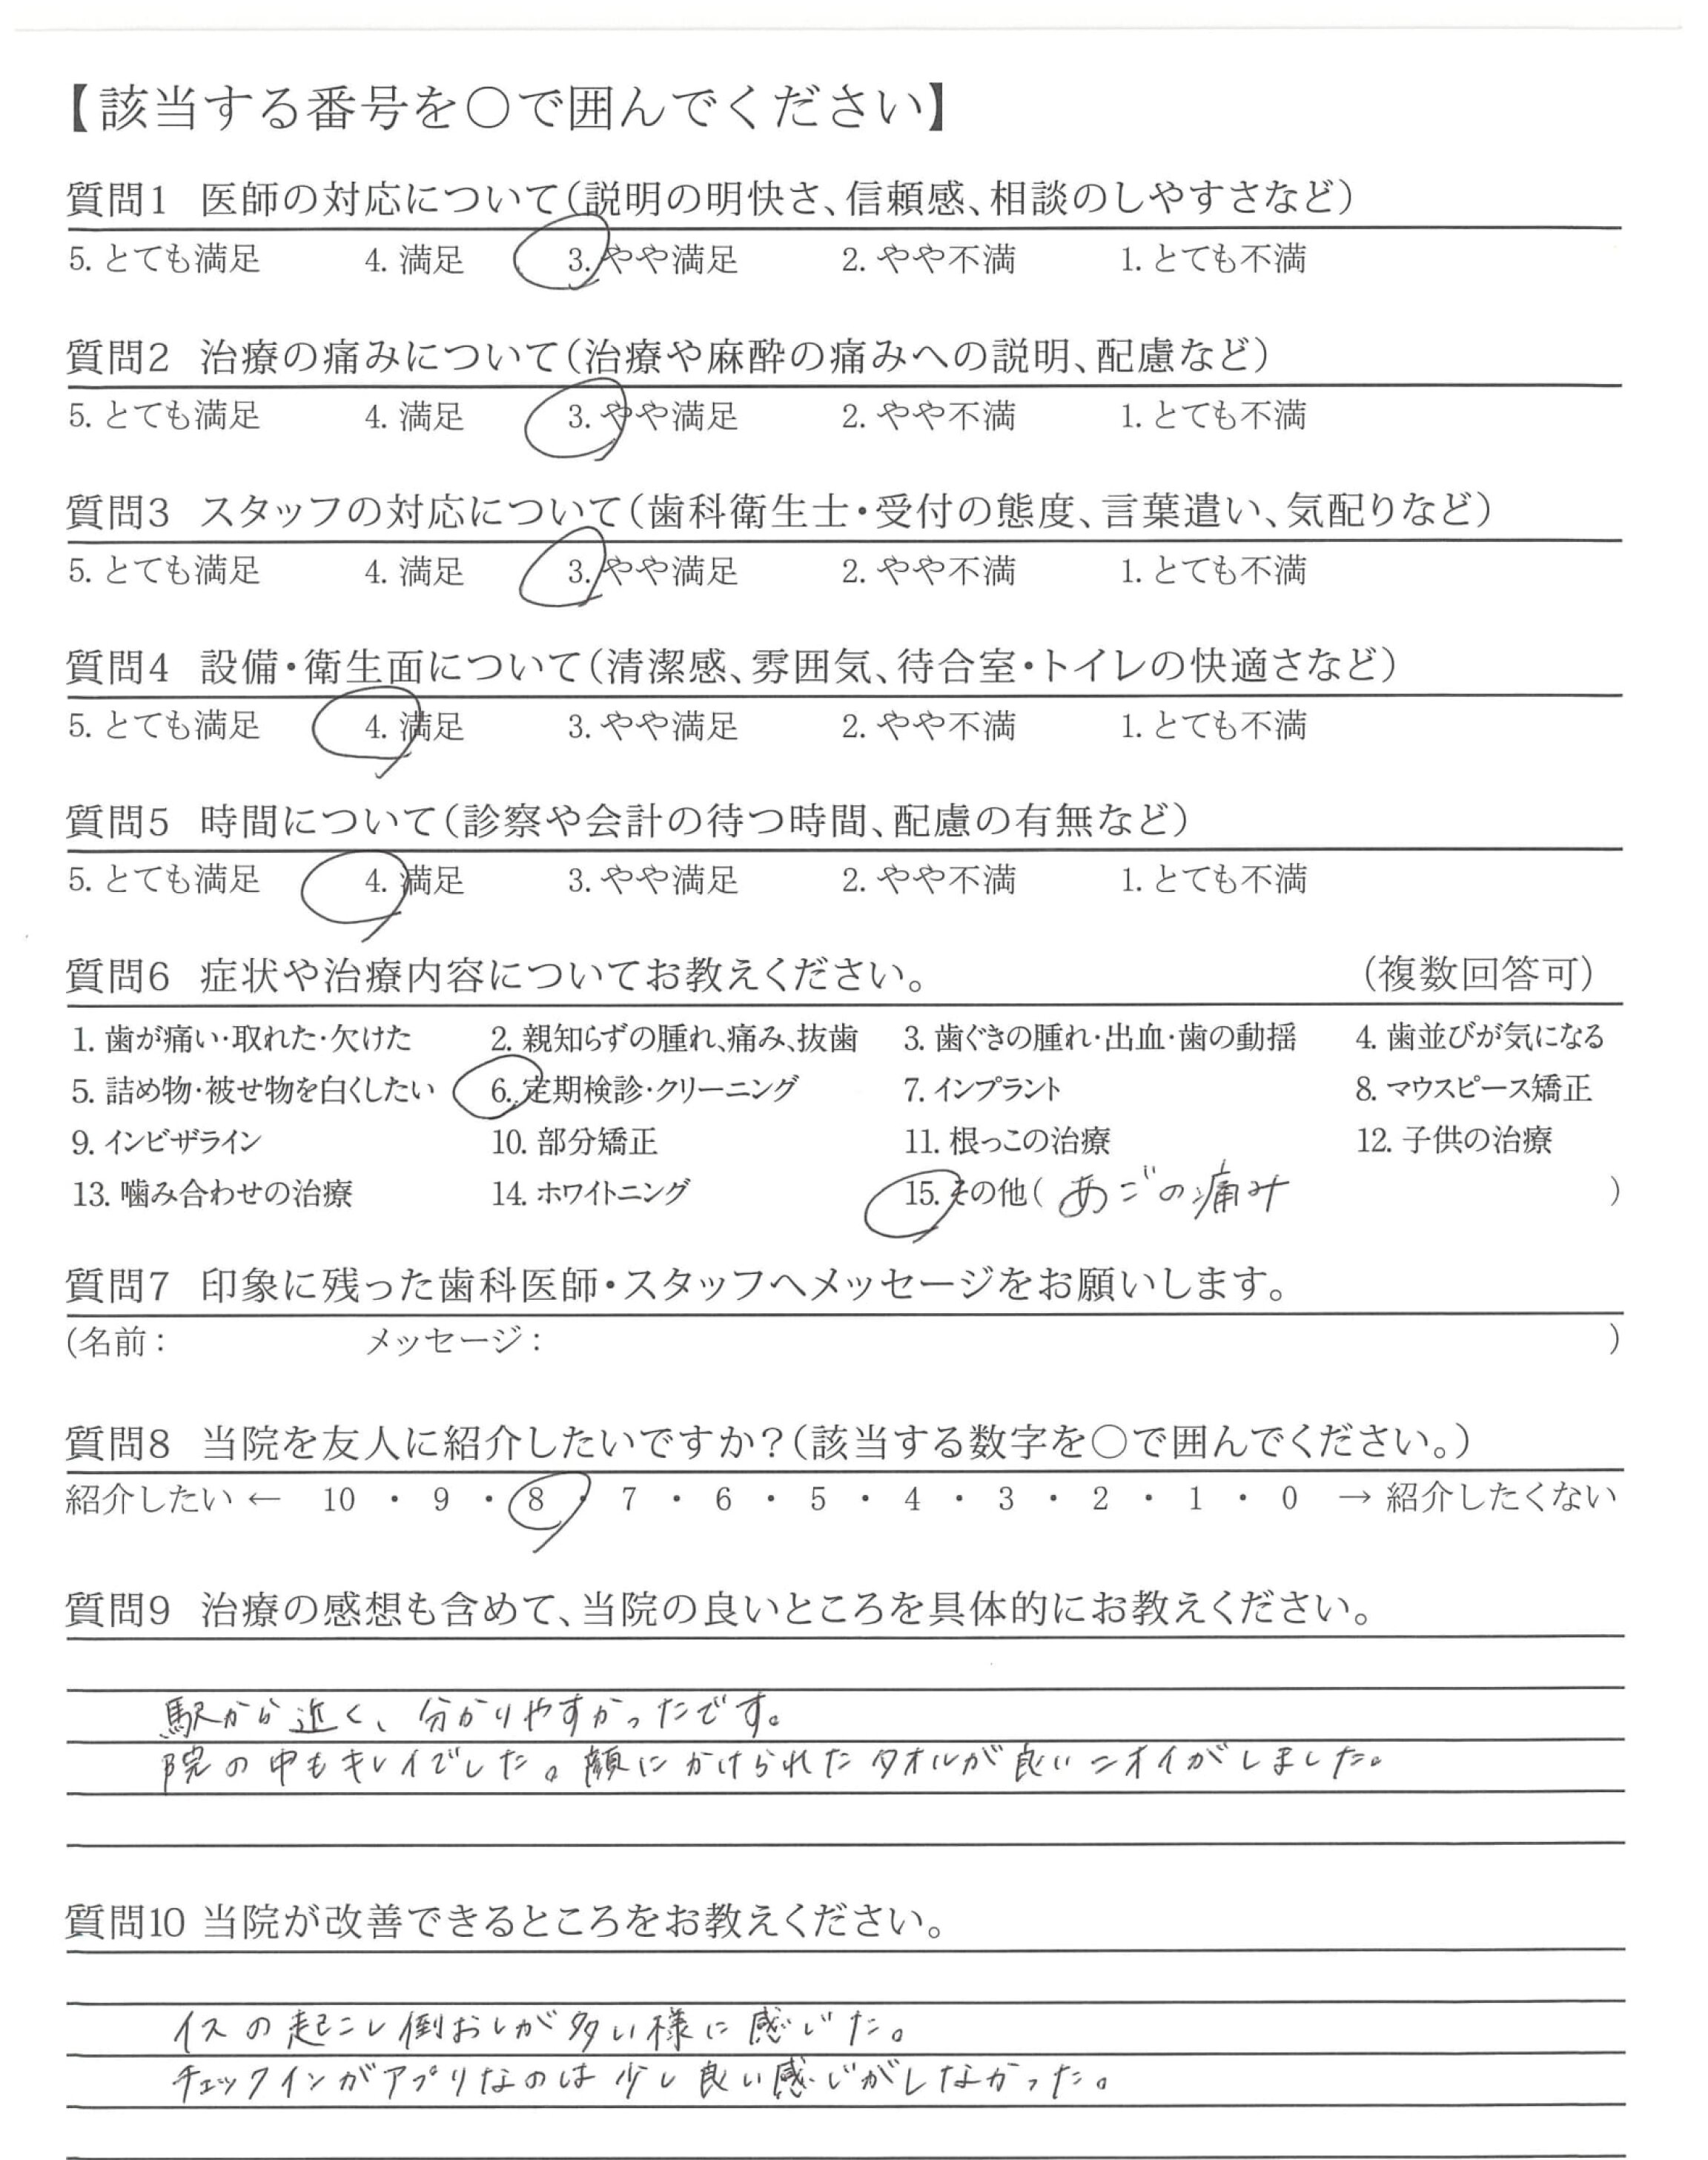 【該当する番号を○で囲んでください】
質問1 医師の対応について(説明の明快さ、信頼感、相談のしやすさなど)
5. とても満足 4. 満足 3. やや満足 2. やや不満 1. とても不満
質問2 治療の痛みについて(治療や麻酔の痛みへの説明、配慮など)
5. とても満足 4. 満足 3. やや満足 2. やや不満 1. とても不満
質問3 スタッフの対応について(歯科衛生士・受付の態度、言葉遣い、気配りなど)
5. とても満足 4. 満足 3. やや満足 2. やや不満 1. とても不満
質問4 設備・衛生面について(清潔感、雰囲気、待合室・トイレの快適さなど)
5. とても満足 4. 満足 3. やや満足 2. やや不満 1. とても不満
質問5 時間について(診察や会計の待つ時間、配慮の有無など)
5. とても満足 4. 満足 3. やや満足 2. やや不満 1. とても不満
質問6 症状や治療内容についてお教えください。 (複数回答可)
1. 歯が痛い・取れた・欠けた 2. 親知らずの腫れ、痛み、抜歯 3. 歯ぐきの腫れ・出血・歯の動揺 4. 歯並びが気になる
5. 詰め物・被せ物を白くしたい 6. 定期検診・クリーニング 7. インプラント 8. マウスピース矯正
9. インビザライン 10. 部分矯正 11. 根っこの治療 12. 子供の治療
13. 噛み合わせの治療 14. ホワイトニング 15. その他( あごの痛み )
質問7 印象に残った歯科医師・スタッフへメッセージをお願いします。
(名前: メッセージ: )
質問8 当院を友人に紹介したいですか?(該当する数字を○で囲んでください。)
紹介したい ← 10 ・ 9 ・ 8 ・ 7 ・ 6 ・ 5 ・ 4 ・ 3 ・ 2 ・ 1 ・ 0 → 紹介したくない
質問9 治療の感想も含めて、当院の良いところを具体的にお教えください。
駅から近く、分かりやすかったです。
院の中もキレイでした。顔にかけられたタオルが良いニオイがしました。
質問10 当院が改善できるところをお教えください。
イスの起こし倒おしが多い様に感じた。
チェックインがアプリなのは少し良い感じがしなかった。